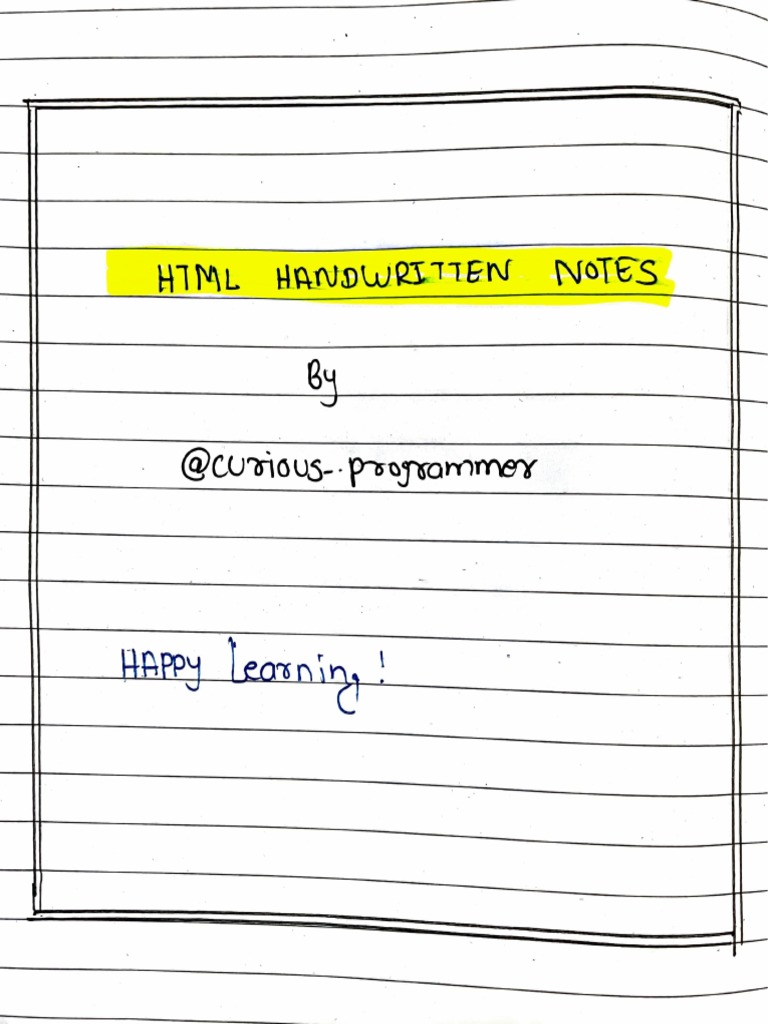 HTML HANDWRITTEN NOTES
By
@curious_.programmer
HAPPY Learning!